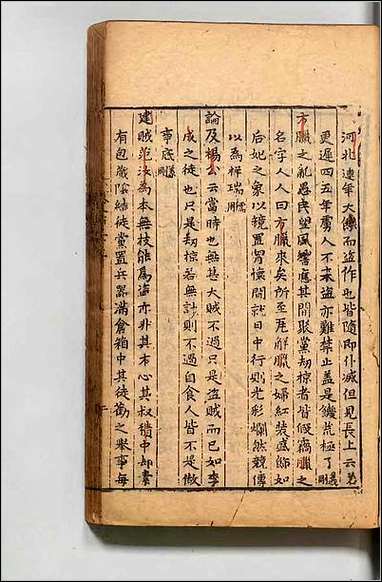 河北連年大饑而盜作也皆隨即仆滅但見長上云若
更遲四五年虜人不來盜亦難禁止蓋是饑荒極了義剛
方臘之亂愚民望風響應其間聚黨劫掠者皆假竊臘之
名字人人曰方臘來矣所至瓦解臘之婦紅裝盛飾如
后妃之象以鏡置胷懷間就日中行則光彩爛然競傳
以為祥瑞儒用
論及楊么云當時也無甚大賊不過只是盜賊而已如李
成之徒也只是劫掠若無討則不過自食人皆不是做
事底義剛
建賊范汝為本無技能為盜亦非其本心其叔積中却素
有包藏陰結徒黨置兵器滿倉箱中其徒勸之舉事每